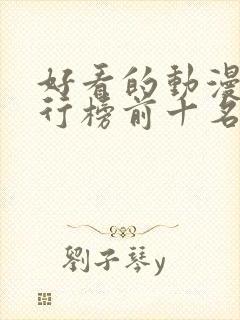 好看的動漫
行榜前十名
劉子琴y